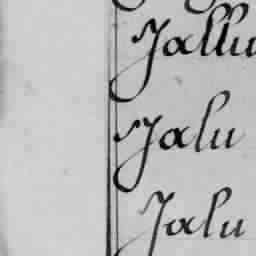 Jallu
Jalu
Jalu